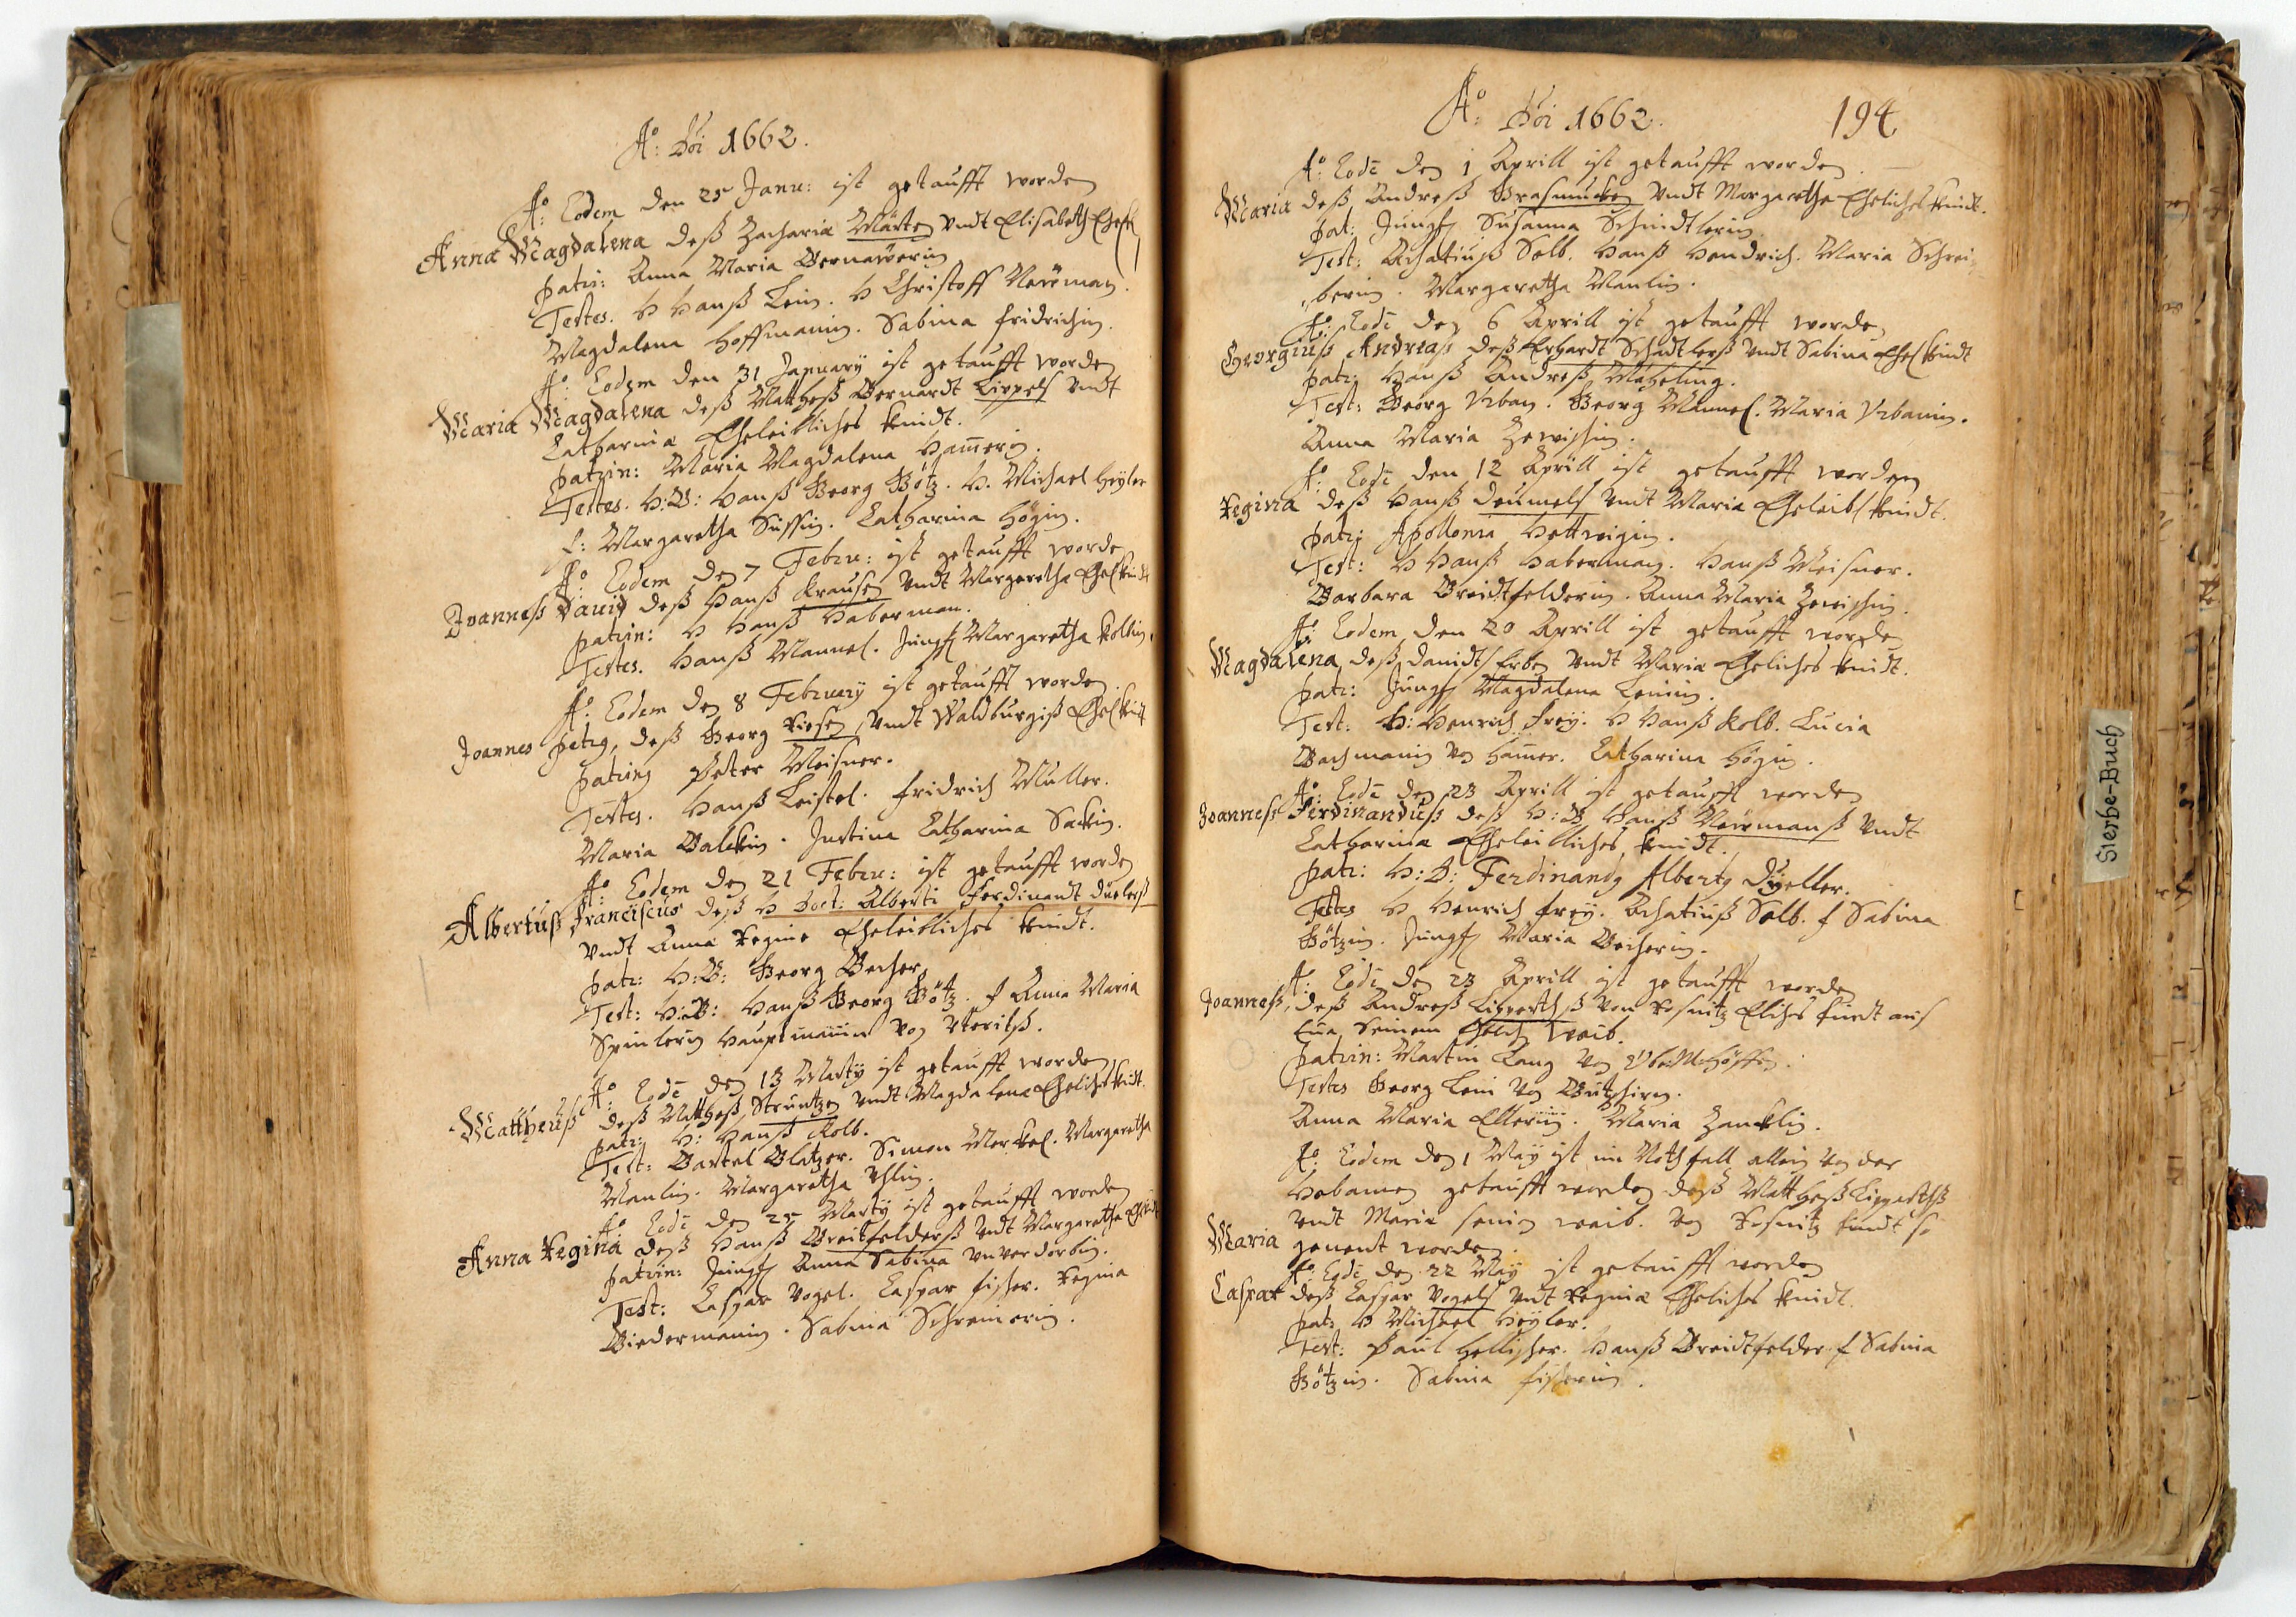 Aö: Dôi 1662.
Aö: Eodem den 25 Janu: ist getaufft worden
Anna Magdalena deß Zacharia Märten vndt Elisabeth Ehel
patr: Anna Maria
Testes. H Hanß Lein. H Christoff Neüman.
Magdalena Hoffmanin. Sabina fridrichin.
Aö: Eodem den 31 January ist getaufft worden
Maria Magdalena deß Mattheß Bernardt Lippels vndt
Catharina Eheleibliches Kindt.
patrin: Maria Magdalena Ham̄erin.
Testes. H: B: Hanß Georg Götz. H. Michael Heyler
f: Margaretha Süssin. Catharina Högin.
Aö: Eodem den 7 Febru: ist getaufft worde
Joanneß Dauid deß Hanß Krausen vndt Margaretha Ehel Kindt
patrin: H Hanß Haberman.
Testes. Hanß Mannel. Jungf Margaretha Kolbin.
Aö: Eodem den 8 February ist getaufft worden.
Joannes petrg, deß Georg Kiesen, vndt Waldburgiß Ehel Kindt
patring Peter Meisner.
Testes. Hanß Leistel. fridrich Müller.
Maria Balckin. Justina Catharina Sackin.
Aö: Eodem den 21 Febru: ist getaufft worden
Albertuß Franciscus deß H Doct: Alberti Ferdinandt Düelerß
vndt Anna Regina Eheleibliches Kindt.
patr: H: B: Georg Becher.
Test: H: B: Hanß Georg Götz. f Anna Maria
Spinlerin Hauptmanin von
Aö: Eodē den 13 Marty ist getaufft worden
Mattheüß deß Mattheß Struntzen vndt Magdalena Eheliches Kindt.
patr: H: Hanß Kolb.
Test: Bartel Blatzer. Simon Merckel. Margaretha
Manlin. Margaretha Vhlin.
Aö: Eodē den 25 Marty ist getaufft worden
Anna Regina deß Hanß Breitfelderß vndt Margaretha
patrin: Jungf Anna Sabina Vnverdorbin.
Test: Caspar Vogel. Caspar fischer. Regina
Biedermanin. Sabina Schreinerin.
Aö: Dôi 1662.
194
Aö: Eodē den 1 Aprill ist getaufft worden
Maria deß Andreß Grasmucken vndt Margaretha Eheliches Kindt.
pat: Jungf Susanna Schmidtlerin
Test: Achatiuß Salb. Hanß Hendrich. Maria Schrei-
berin. Margaretha Manlin.
Aö: Eodē den 6 Aprill ist getaufft worde
Georgiuß Andreaß deß Erhardt Schadtlerß vndt Sabina Ehel Kindt
patr: Hanß Andreß
Test: Georg Vrban. Georg Mannel. Maria Vrbanin.
Anna Maria Zewischin.
Aö: Eodē den 12 Aprill ist getaufft worden
Regina deß Hanß Deümels vndt Maria Eheleibl Kindt.
patr: Apollonia Hettwigin.
Test: H Hanß Haberman. Hanß Meisner.
Barbara Breidtfelderin. Anna Maria Zewischin.
Aö: Eodem den 20 Aprill ist getaufft worde
Magdalena, deß Dauidt Erben vndt Maria Eheliches Kindt.
patr: Jungf Magdalena Leinin.
Test: H: Henrich frey. H Hanß Kolb. Lucia
Bachmanin von Ham̄er. Catharina Högin.
Aö: Eodē den 23 Aprill ist getaufft worden
Joanneß Ferdinanduß deß H: B Hanß Neürmanß vndt
Catharina Eheleibliches Kindt.
patr: H: D: Ferdinandg Albertg Düeller.
Testes H Henrich frey. Achatiuß Salb. f Sabina
Götzin. Jungf Maria Becherin.
Aö: Eodē den 23 Aprill ist getaufft worden
Joanneß, deß Andreß Lippertß von Rosnitz Eliches Kindt auß
Eua seinem Ehelich weib.
patrin: Martin Lang von
Testes Georg Lein von
Anna Maria Ellerin. Maria Zancklin.
Aö: Eodem den 1 May ist im Nothfall allein von der
Hebamen getaufft worden deß Mattheß Lippertß
vndt Maria seinem weib. von Rosnitz Kindt so
Maria genent worden.
Aö: Eodē den 22 May ist getaufft worden
Caspar deß Caspar Vogels vndt Regina Eheliches Kindt.
patr: H Michael Heyler.
Test: Paul Hellischer. Hanß Breidtfelder f Sabina
Götzin. Sabina fischerin.
Sterbe-Buch